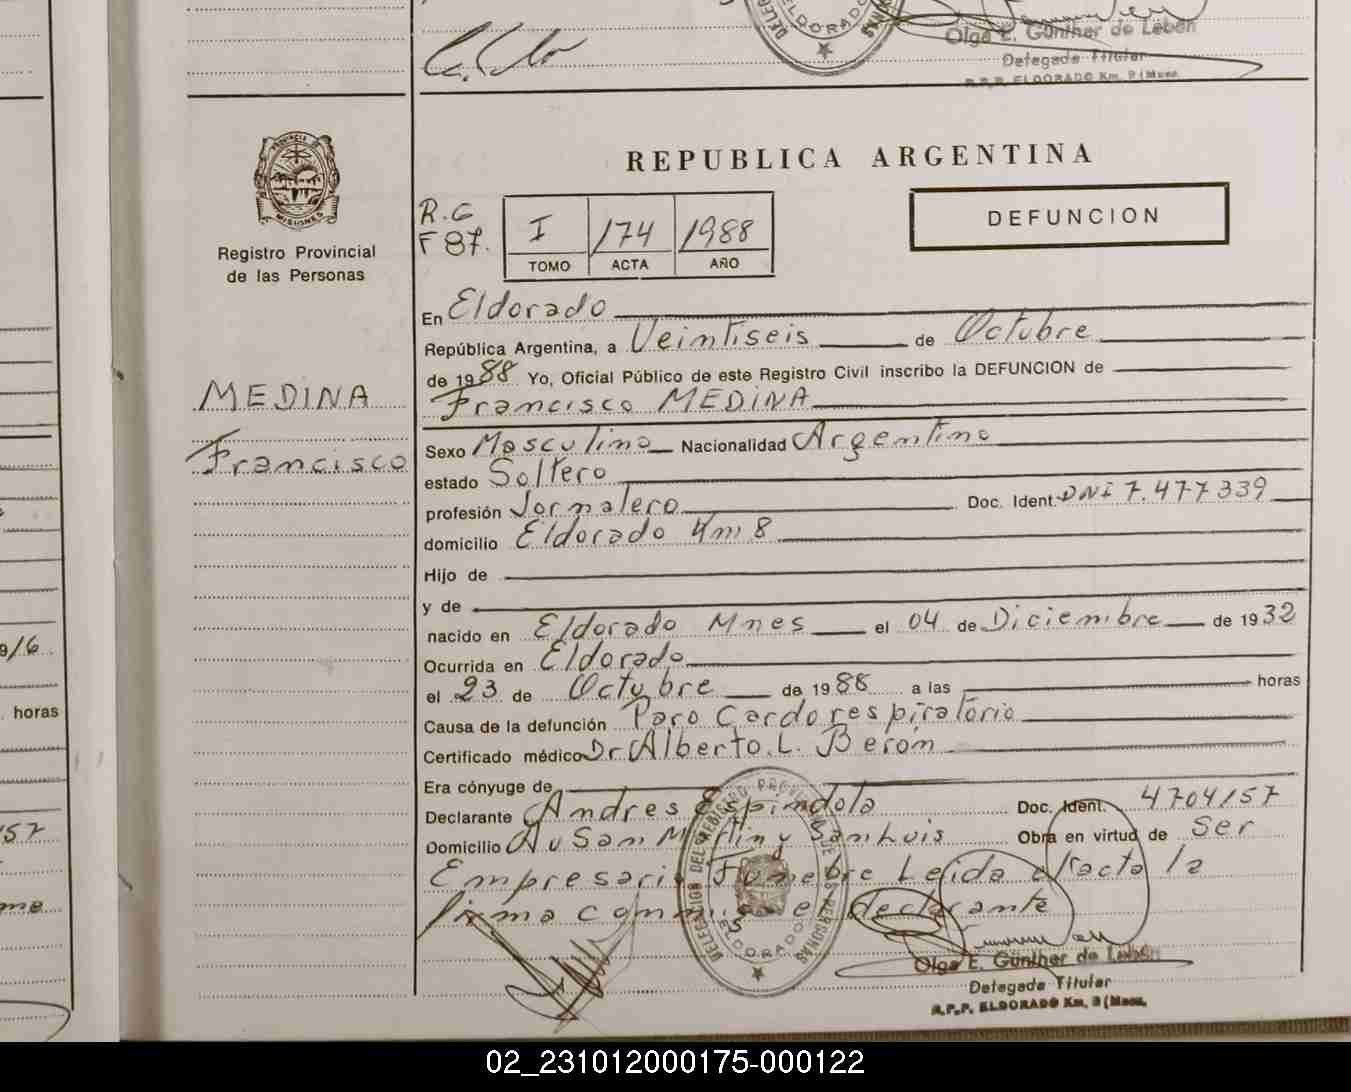 Olga E. Günther de Lebén
Delegada Titular
R.P.P. ELDORADO Km. 9 (Mnes.
REPUBLICA ARGENTINA
PROVINCIA DE MISIONES
Registro Provincial
de las Personas
R.G
F 87.
I 174 1988
TOMO ACTA AÑO
DEFUNCION
MEDINA
Francisco
En Eldorado
República Argentina, a Veintiseis de Octubre
de 1988 Yo, Oficial Público de este Registro Civil inscribo la DEFUNCION de
Francisco MEDINA
Sexo Masculino Nacionalidad Argentino
estado Soltero
profesión Jornalero Doc. Ident. DNI 7.477339
domicilio Eldorado Km 8
Hijo de
y de
nacido en Eldorado Mnes el 04 de Diciembre de 1932
Ocurrida en Eldorado
el 23 de Octubre de 1988 a las horas
Causa de la defunción Paro Cardorespiratorio
Certificado médico Dr. Alberto. L. Berón
Era cónyuge de
Declarante Andres Espindola Doc. Ident. 4704157
Domicilio Av San Martin y San Luis Obra en virtud de Ser
Empresario Funebre Leida el acta la
firma conmigo el declarante
DELEGACION DEL REGISTRO PROVINCIAL DE LAS PERSONAS
ELDORADO
Olga E. Günther de Lebén
Delegada Titular
R.P.P. ELDORADO Km. 9 (Mnes.
9/6
horas
57
02_231012000175-000122